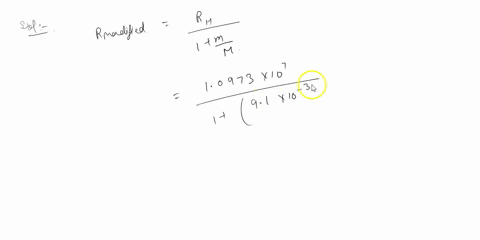 Sol:- R modified = R_H / (1 + m/M)
= 1.0973 × 10^7 / (1 + (9.1 × 10^-34